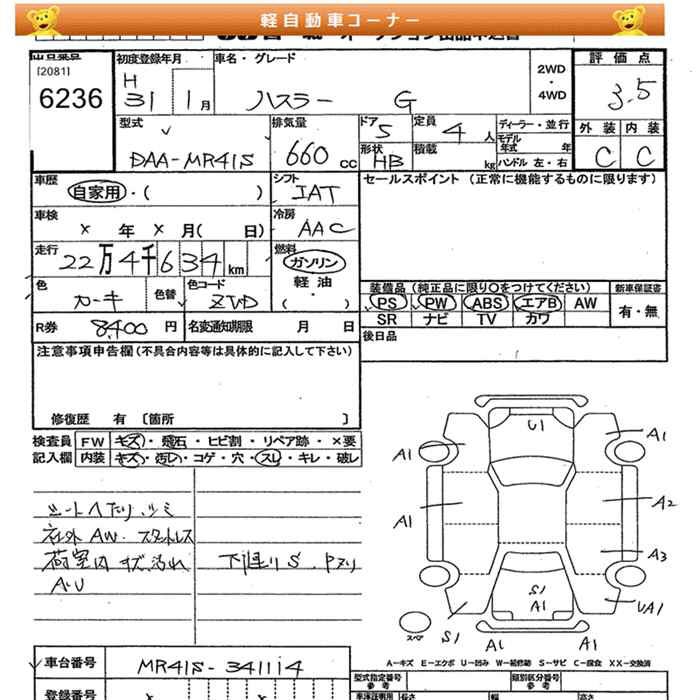 軽自動車コーナー
[2081]
6236
初度登録年月
H
31 1月
車名・グレード
ハスラー G
2WD
・
4WD
評価点
3.5
外装 内装
C C
型式
DAA-MR41S
排気量
660 cc
ドア
5
形状
HB
定員
4 人
積載
kg
ディーラー・並行
モデル
年式 年
ハンドル 左・右
車歴
自家用・( )
シフト
IAT
セールスポイント (正常に機能するものに限ります)
車検
× 年 × 月( 日)
冷房
AAC
走行
22万4千634km
燃料
ガソリン
軽油
( ・ )
色
カーキ
色替
色コード
ZVD
装備品 (純正品に限り○をつけてください)
PS PW ABS エアB AW
SR ナビ TV カワ
新車保証書
有・無
R券 8,400 円
名変通知期限 月 日
後日品
注意事項申告欄 (不具合内容等は具体的に記入して下さい)
修復歴 有 〔箇所 〕
検査員
記入欄
FW キズ・飛石・ヒビ割・リペア跡・×要
内装 キズ・汚れ・コゲ・穴・スレ・キレ・破レ
シートヘたり、シミ
社外AW・スタットレス
荷室内キズ、汚れ
AU
下廻りS、
U1
A1
A1
A1
A2
A3
UA1
S1
A1
S1
A1
A1
スペア
A-キズ E-エクボ U-凹み W-補修跡 S-サビ C-腐食 XX-交換済
車台番号
MR41S-341114
登録番号
型式指定番号
参考
類別区分番号
参考
長さ 幅 高さ